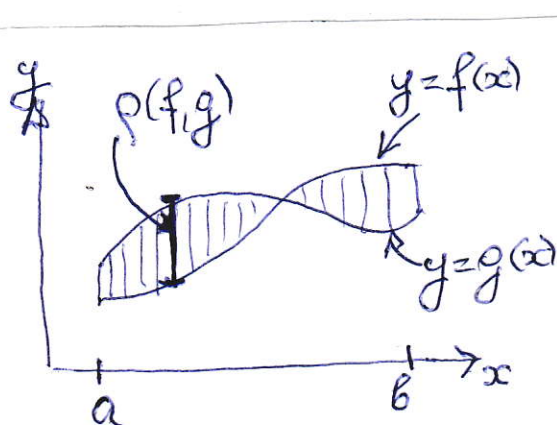 y
ρ(f,g)
y=f(x)
y=g(x)
x
a
b